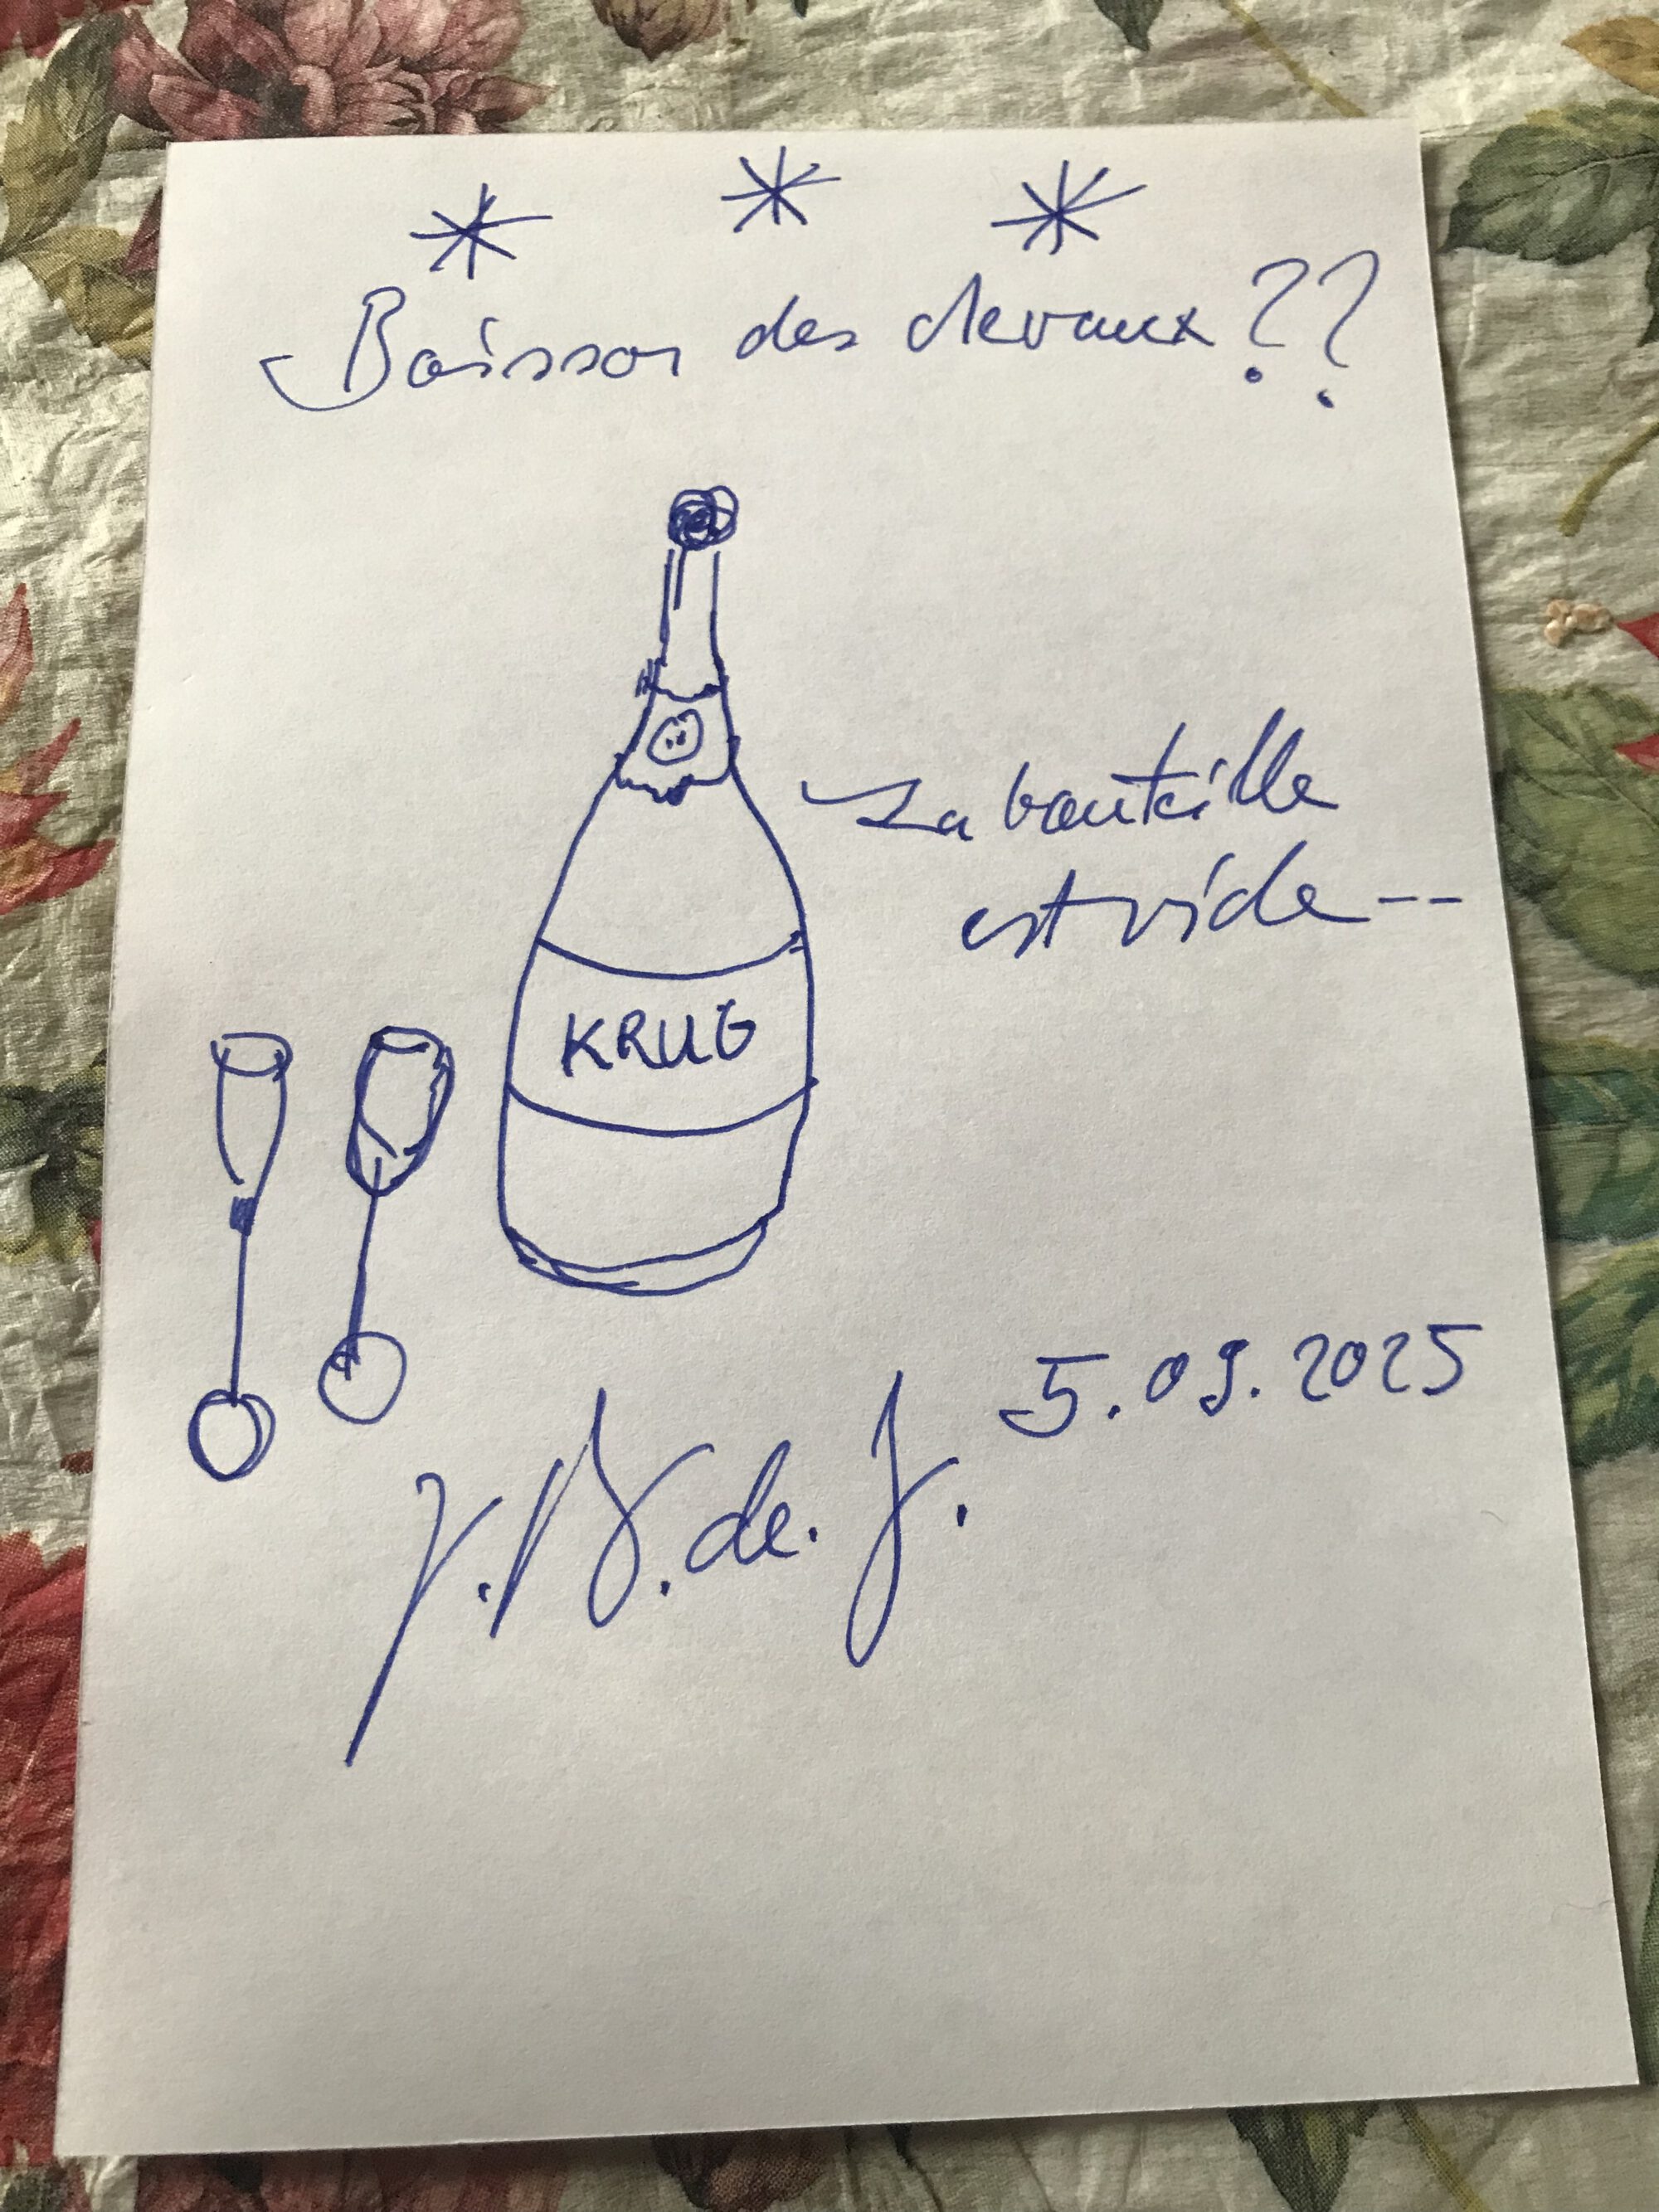 Boisson des chevaux??
La bouteille
est vide--
KRUG
5.09.2025
J.B.de.J.